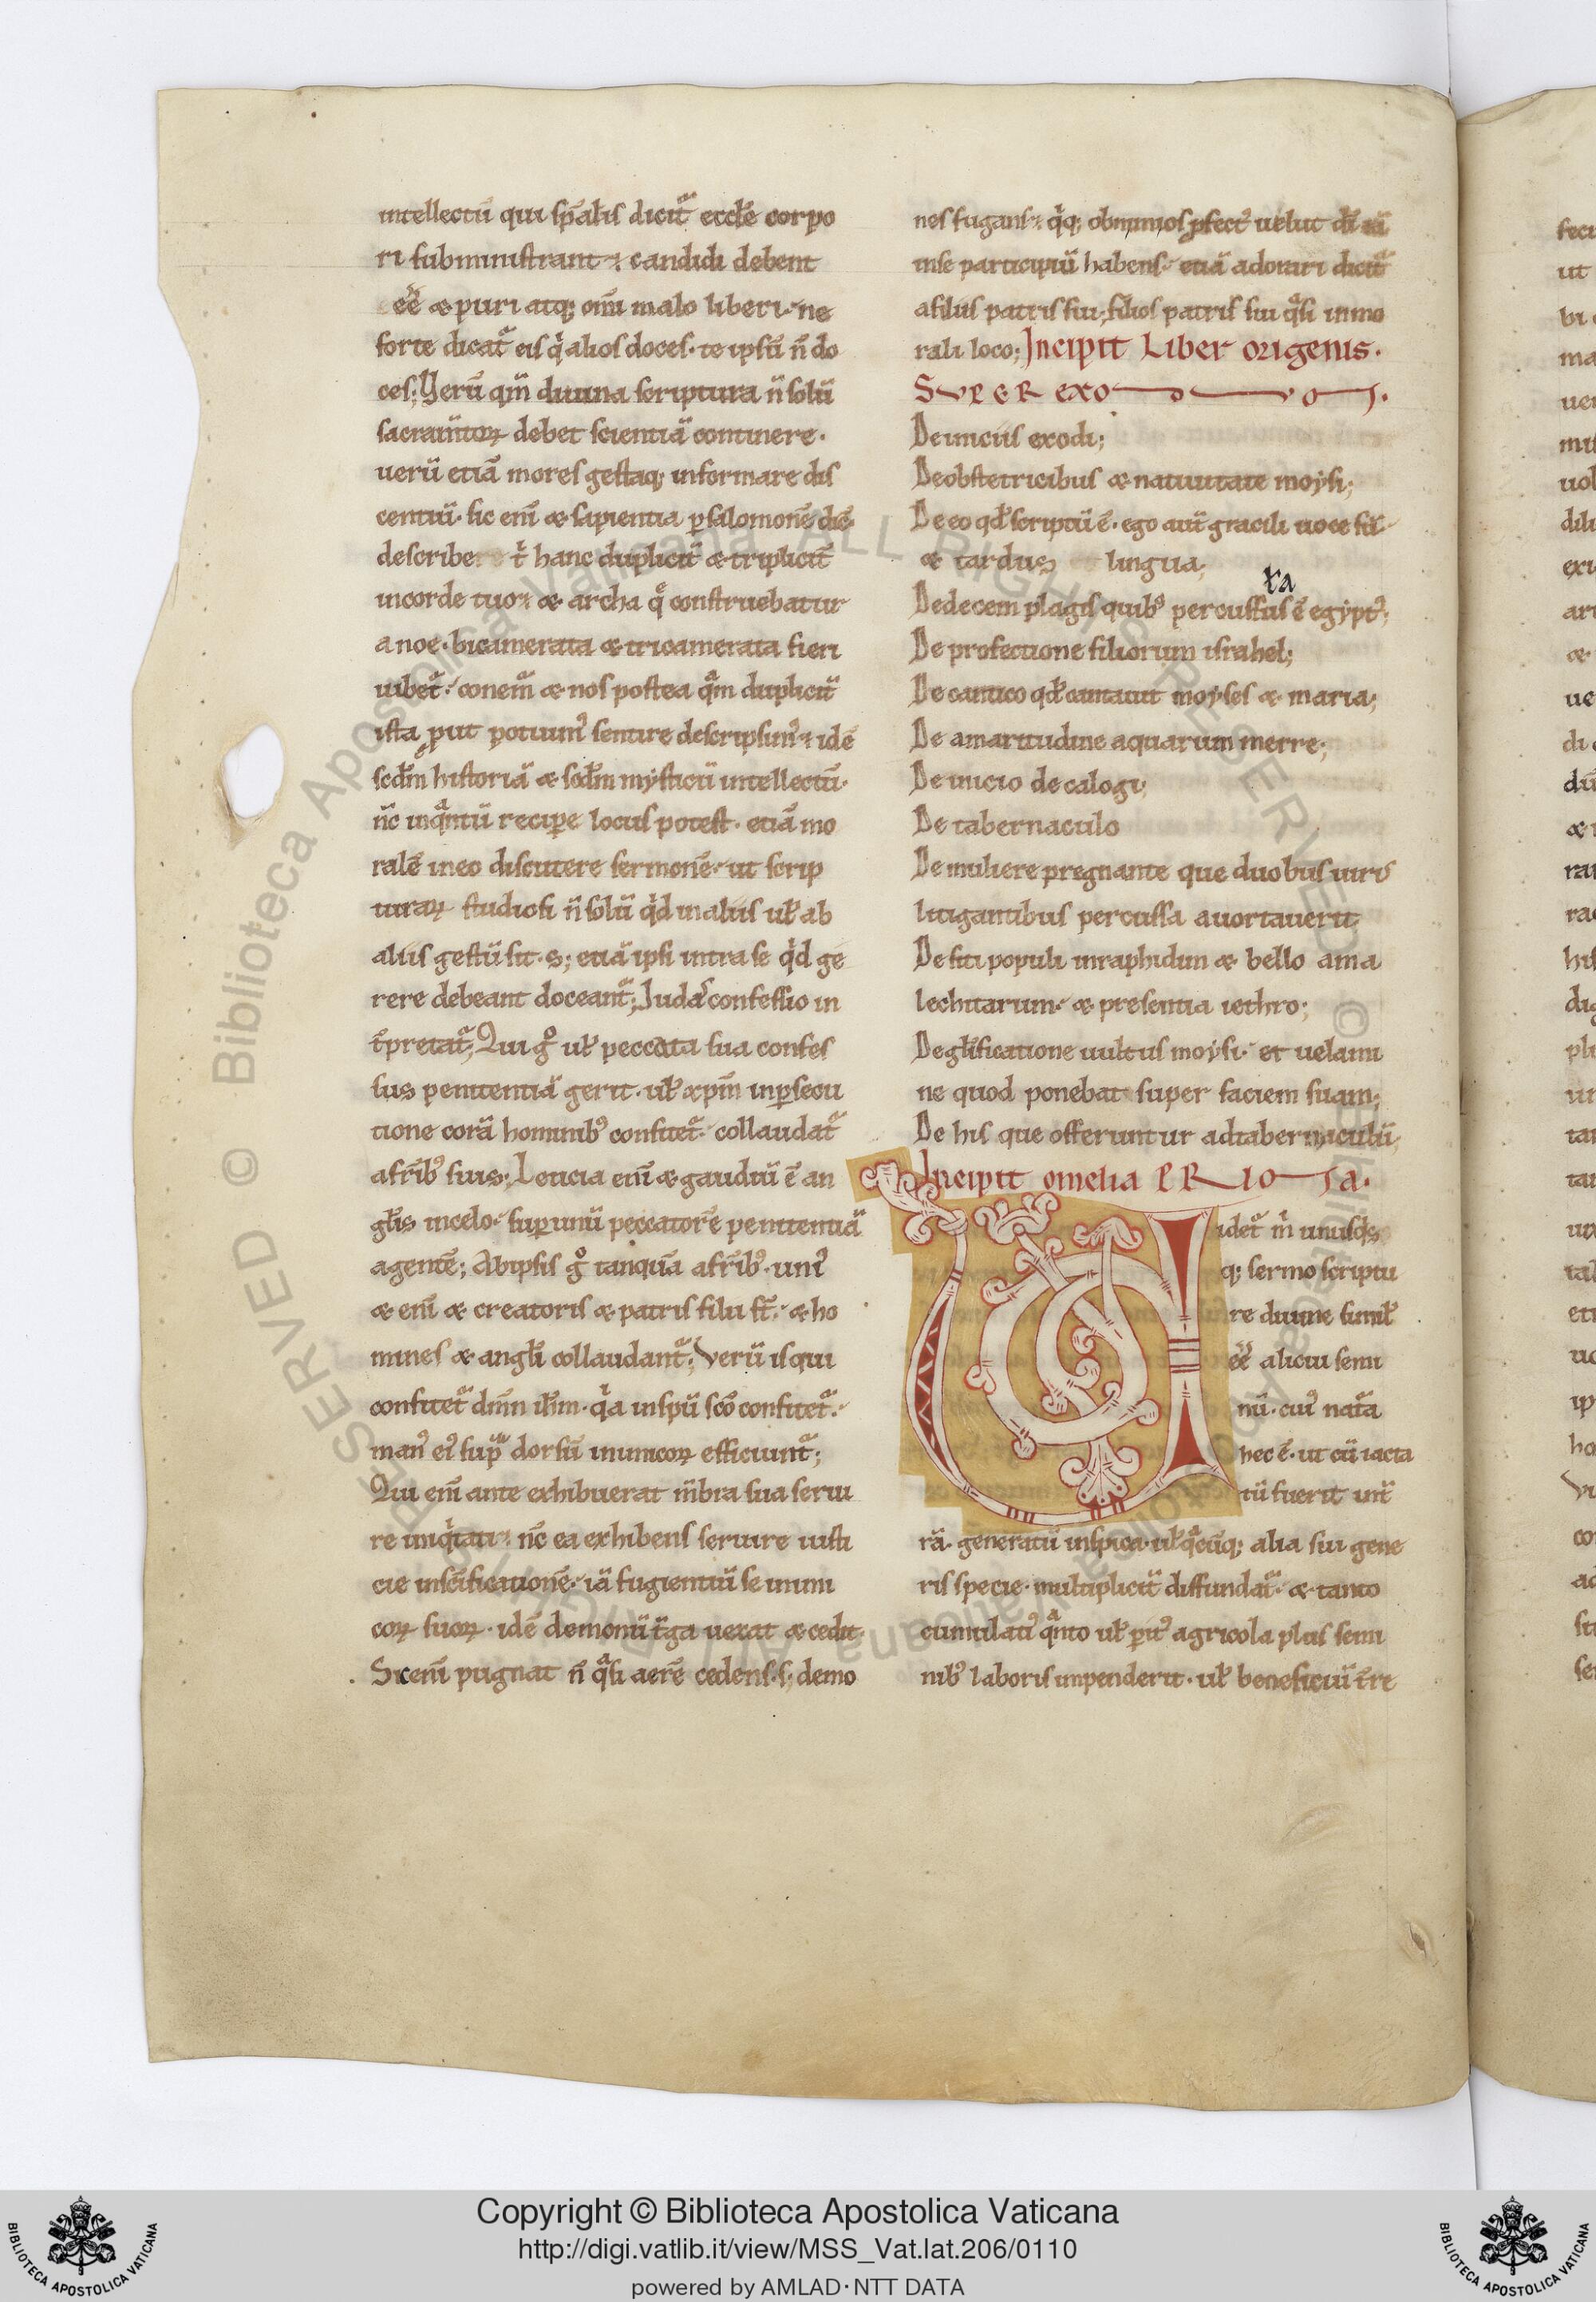 intellectū qui sp̄alis dicit᷑ eccl̄e corpo
ri subministrant; candidi debent
eē & puri atq; om̄i malo liberi. ne
forte dicat᷑ eis q̇ alios doces. te ipsū n̄ do
ces; Verū qm̄ diuina scriptura n̄ solū
sacram̄toꝝ debet scientiā continere.
uerū etiā mores gestaq; informare dis
centiū. sic eni̅ & sapientia p̱ salomonē dic̄.
describe t̄ hanc duplicit̄ & triplicit̄
in corde tuo; & archa q̄ construebatur
a noe. bicamerata & tricamerata fieri
iubet᷑. conem̄ & nos postea qͣm duplicit̄
ista ꝓut potuim᷒ sentire descripsim᷒; idē
scd̄m historiā & scd̄m mysticū intellectū.
n̄c inqͣntū recipe locus potest. etiā mo
ralē in eo discutere sermonē. ut scrip
turaꝝ studiosi n̄ solū q̇d in aliis uł ab
aliis gestū sit. s; etiā ipsi intra se q̇d ge
rere debeant doceant᷑; Iudȩ confessio in
t̄pretat᷑; Qui gͦ uł peccata sua confes
sus penitentiā gerit. uł xp̄m in p̱secu
tione corā hominib᷒ confitet᷑. collaudat᷑
a fr̄ib᷒ suis; Leticia eni̅ & gaudiū ē an
gl̄is in celo. sup̱ unū peccatorē penitentiā
agentē; Ab ipsis gͦ tanquā a fr̄ib᷒. uni᷒
& eni̅ & creatoris & patris filii st̄. & ho
mines & angl̄i collaudant᷑; Verū is qui
confitet᷑ dn̄m ih̄m. qͥa in sp̄u sc̄o confitet᷑.
man᷒ ei᷒ sup̱ dorsū inimicoꝝ efficiunt᷑;
Qui eni̅ ante exhibuerat m̄bra sua serui
re iniqͥtati; n̄c ea exhibens seruire iusti
cie in sc̄ificationē. iā fugientiū se inimi
coꝝ suoꝝ. idē demonū t̄ga uexat & cedit.
Sic eni̅ pugnat n̄ qͣsi aerē cedens. s; demo
nes fugans; q̇q; ob nimios p̱fect᷒ uelut dī
in se participiū habens. etiā adorari dicit᷑
a filiis patris sui. filios patris sui qͣsi in mo
rali loco; Incipit Liber origenis.
SVPER EXODVM.
De iniciis exodi;
De obstetricibus & natiuitate moysi;
De eo qd̄ scriptū ē. ego aut̄ gracili uoce sū
& tardus lingua;
De decem plagis quib᷒ percussus ē egypt᷒;
ta
De profectione filiorum israhel;
De cantico qd̄ cantauit moyses & maria;
De amaritudine aquarum merre;
De inicio decalogi;
De tabernaculo
De muliere pregnante que duobus uiris
litigantibus percussa auortauerit
De siti populi in raphidim & bello ama
lechitarum. & presentia iethro;
De gl̄ificatione uultus moysi. et uelami
ne quod ponebat super faciem suam;
De his que offeruntur ad tabernaculū;
Incipit omelia PRIMA.
Videt᷑ m̄ unusq̇s
q; sermo scriptu
re diuine simił
eē alicui semi
nū. cui᷒ nat᷑a
hec ē. ut cū iacta
tū fuerit in t̄
rā. generatū in spica. uł qͣcūq; alia sui gene
ris specie. multiplicit̄ diffundat᷑. & tanto
cumulati᷒ qͣnto uł pit᷒ agricola plus semi
nib᷒ laboris impenderit. uł beneficiū t̄re
Copyright © Biblioteca Apostolica Vaticana
http://digi.vatlib.it/view/MSS_Vat.lat.206/0110
powered by AMLAD·NTT DATA